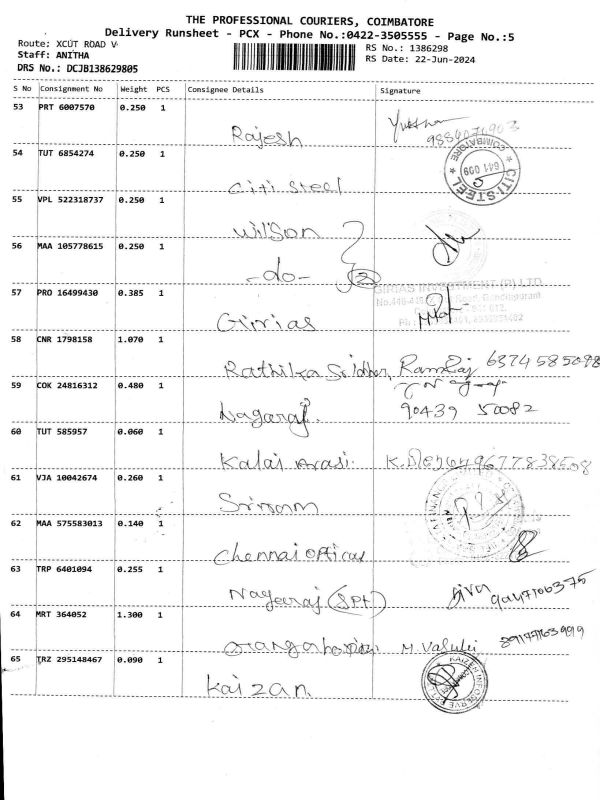 THE PROFESSIONAL COURIERS, COIMBATORE
Delivery Runsheet - PCX - Phone No.:0422-3505555 - Page No.:5
Route: XCUT ROAD V
Staff: ANITHA
DRS No.: DCJB138629805
RS No.: 1386298
RS Date: 22-Jun-2024
S No Consignment No Weight PCS Consignee Details Signature
53 PRT 6007570 0.250 1
Rajesh
54 TUT 6854274 0.250 1
Citi Steel
CITI STEEL * COIMBATORE * 641 009
55 VPL 522318737 0.250 1
Wilson
56 MAA 105778615 0.250 1
-do- 2
57 PRO 16499430 0.385 1
GIRIAS INVESTMENT (P) LTD
Girias
58 CNR 1798158 1.070 1
Rathika Sridher, Ramraj 6374585098
59 COK 24816312 0.480 1
Nagaraj. 90439 50082
60 TUT 585957 0.060 1
Kalai Arasi.
61 VJA 10042674 0.260 1
Sriram
62 MAA 575583013 0.140 1
Chennai Opticus
63 TRP 6401094 0.255 1
Nagaraj (SPT) Siva
64 MRT 364052 1.300 1
M. Vasuki
65 TRZ 295148467 0.090 1
Kaizan